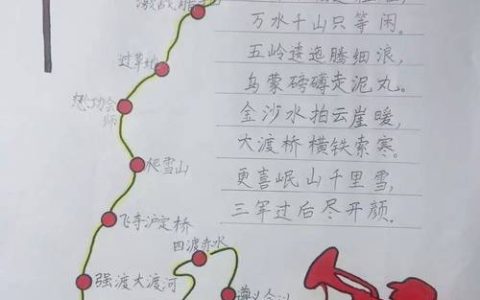 万水千山只等闲。
五岭逶迤腾细浪，
乌蒙磅礴走泥丸。
金沙水拍云崖暖，
大渡桥横铁索寒。
更喜岷山千里雪，
三军过后尽开颜。
过草地
懋功会
师
爬雪山
飞夺泸定桥
强渡大渡河
四渡赤水